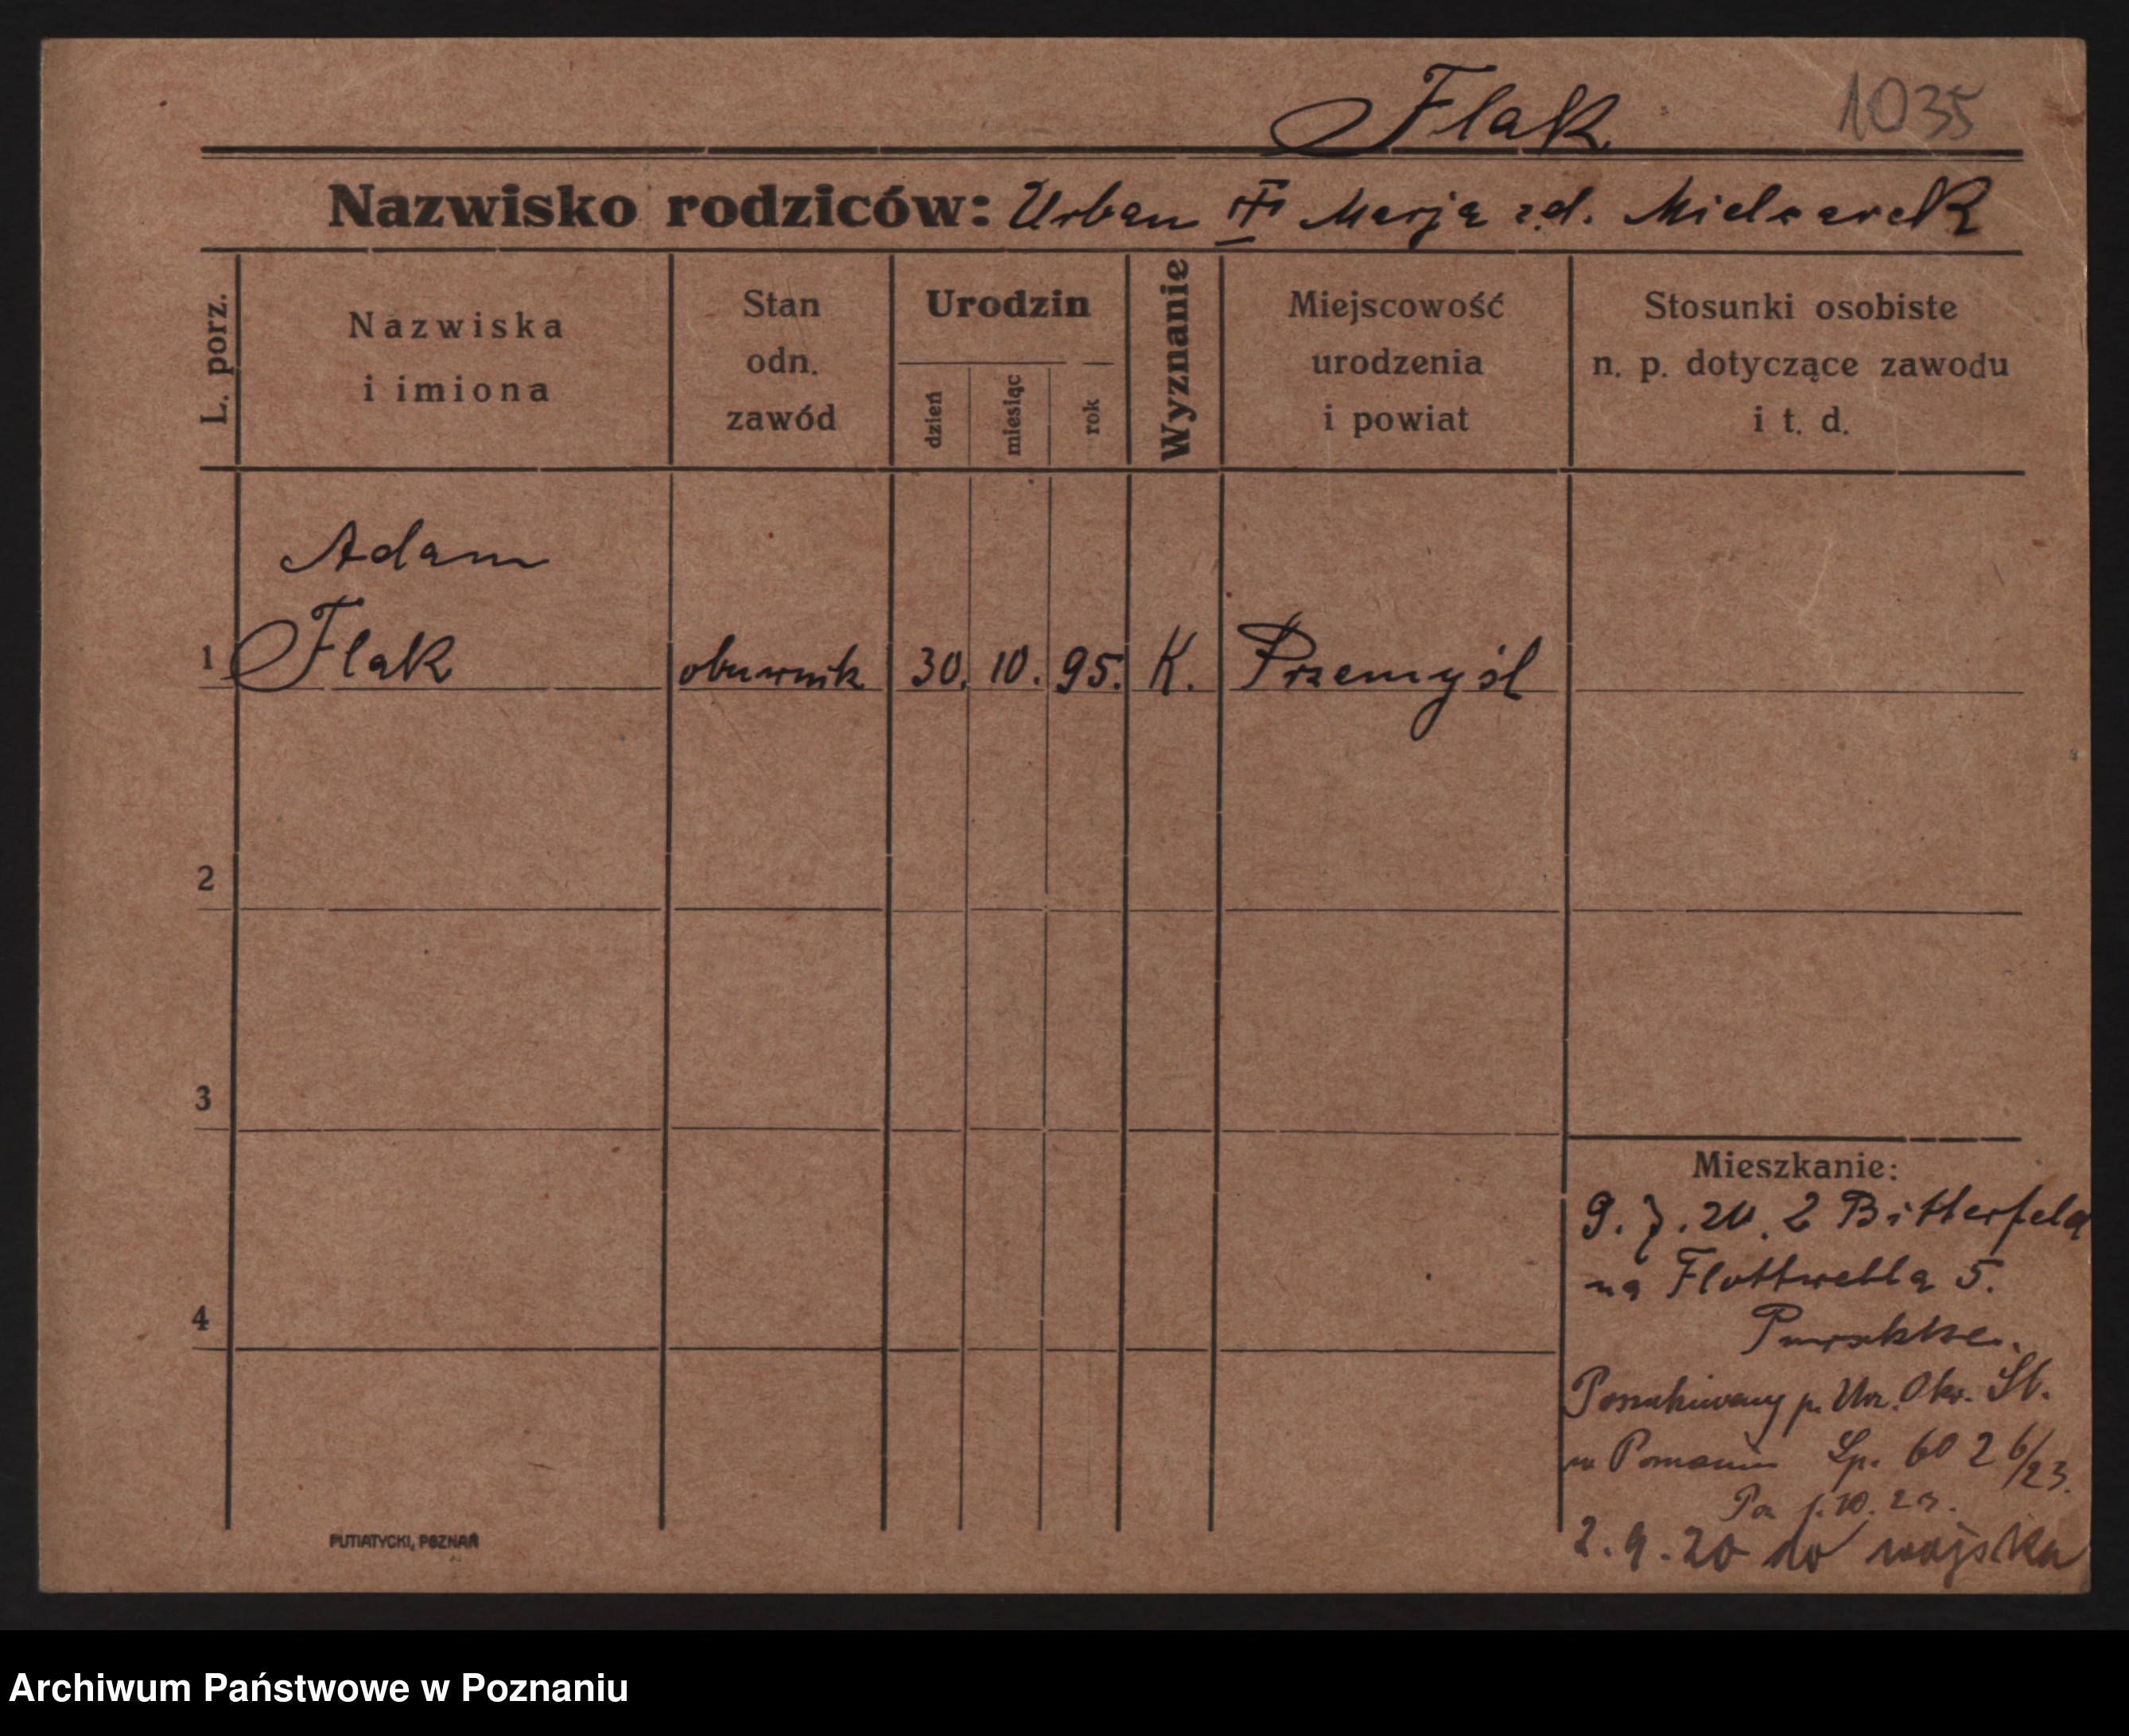 Flak 1035
Nazwisko rodziców: Urban Marja z d. Mielcarek
L. porz.
Nazwiska
i imiona
Stan
odn.
zawód
Urodzin
dzień
miesiąc
rok
Wyznanie
Miejscowość
urodzenia
i powiat
Stosunki osobiste
n. p. dotyczące zawodu
i t. d.
Adam
1 Flak obuwnik 30. 10. 95. K. Przemyśl
2
3
4
Mieszkanie:
9. 7. 20. z Bitterfeld
na Flottwella 5.
Poszukiwany p. Okr. Sl.
w Poznaniu Sp. 602 6/23.
2. 9. 20 do wojska
PUTIATYCKI, POZNAŃ
Archiwum Państwowe w Poznaniu